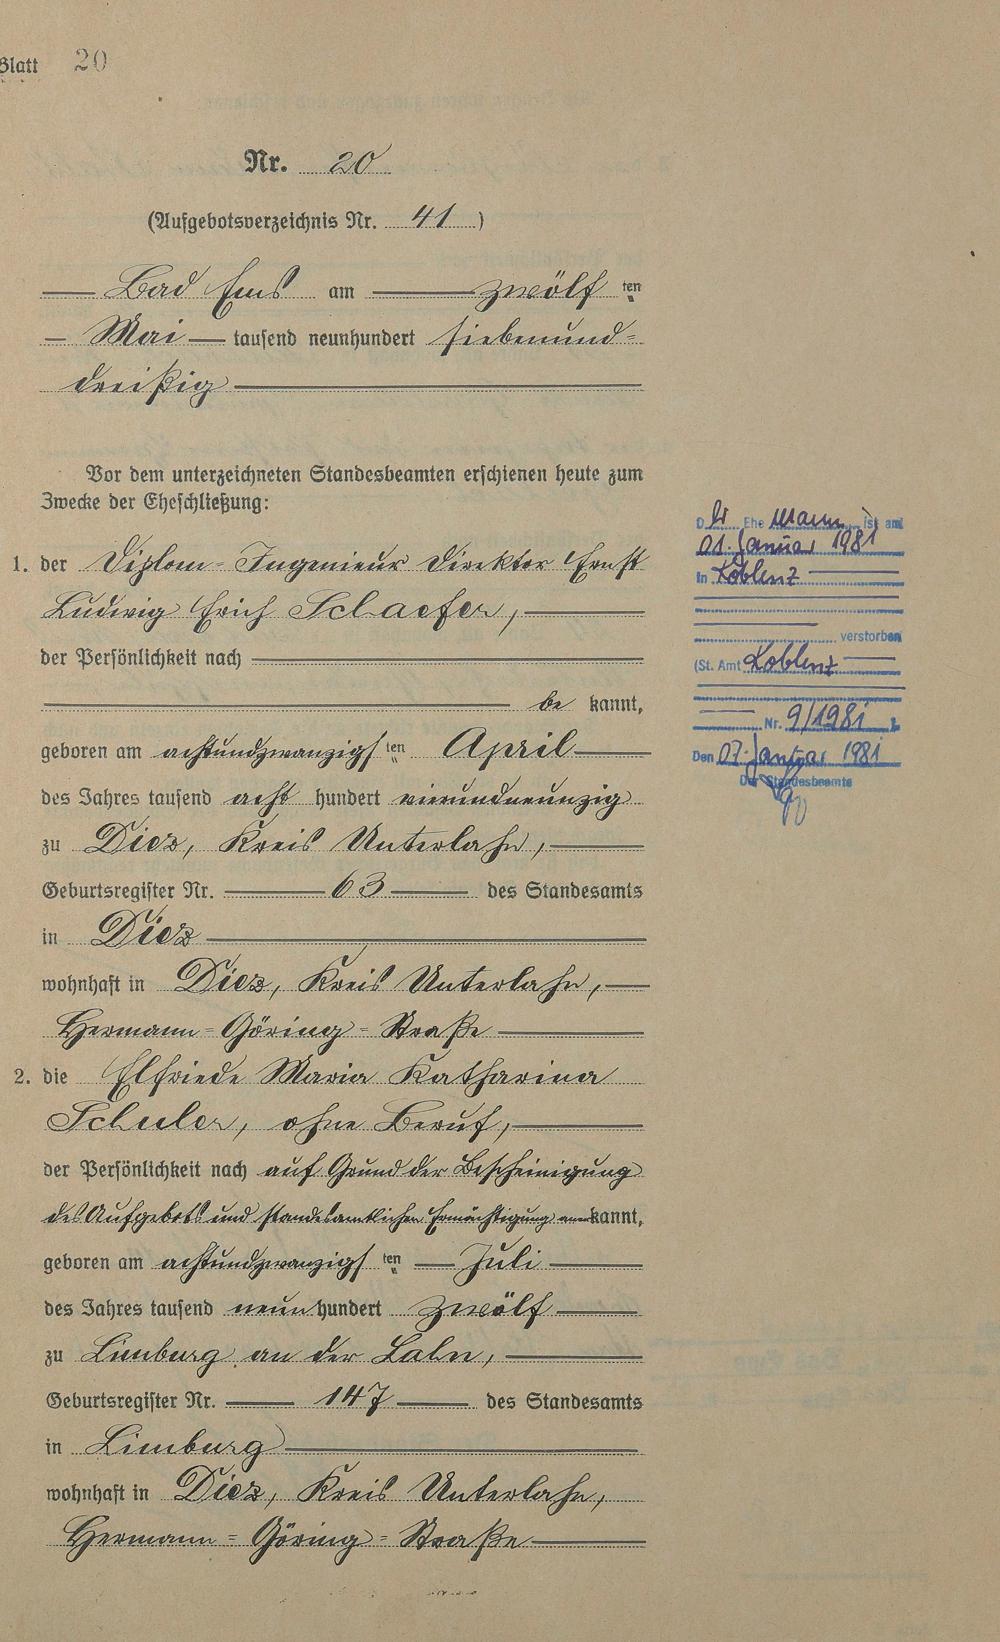 Blatt 20
Nr. 20
(Aufgebotsverzeichnis Nr. 41)
Bad Ems am zwölften
Mai tausend neunhundert siebenund-
dreißig
Vor dem unterzeichneten Standesbeamten erschienen heute zum
Zwecke der Eheschließung:
1. der Diplom-Ingenieur Direktor Ernst
Ludwig Erich Schaefer,
der Persönlichkeit nach
be kannt,
geboren am achtundzwanzigsten April
des Jahres tausend acht hundert vierundneunzig
zu Diez, Kreis Unterlahn,
Geburtsregister Nr. 63 des Standesamts
in Diez
wohnhaft in Diez, Kreis Unterlahn,
Hermann-Göring-Straße
2. die Elfriede Maria Katharina
Schuler, ohne Beruf,
der Persönlichkeit nach auf Grund der Bescheinigung
des Aufgebots und standesamtlichen Ermächtigung anerkannt,
geboren am achtundzwanzigsten Juli
des Jahres tausend neun hundert zwölf
zu Limburg an der Lahn,
Geburtsregister Nr. 147 des Standesamts
in Limburg
wohnhaft in Diez, Kreis Unterlahn,
Hermann-Göring-Straße
Der Ehemann ist am
01. Januar 1981
in Koblenz
verstorben
(St. Amt Koblenz
Nr. 9/1981 ).
Den 07. Januar 1981
Der Standesbeamte